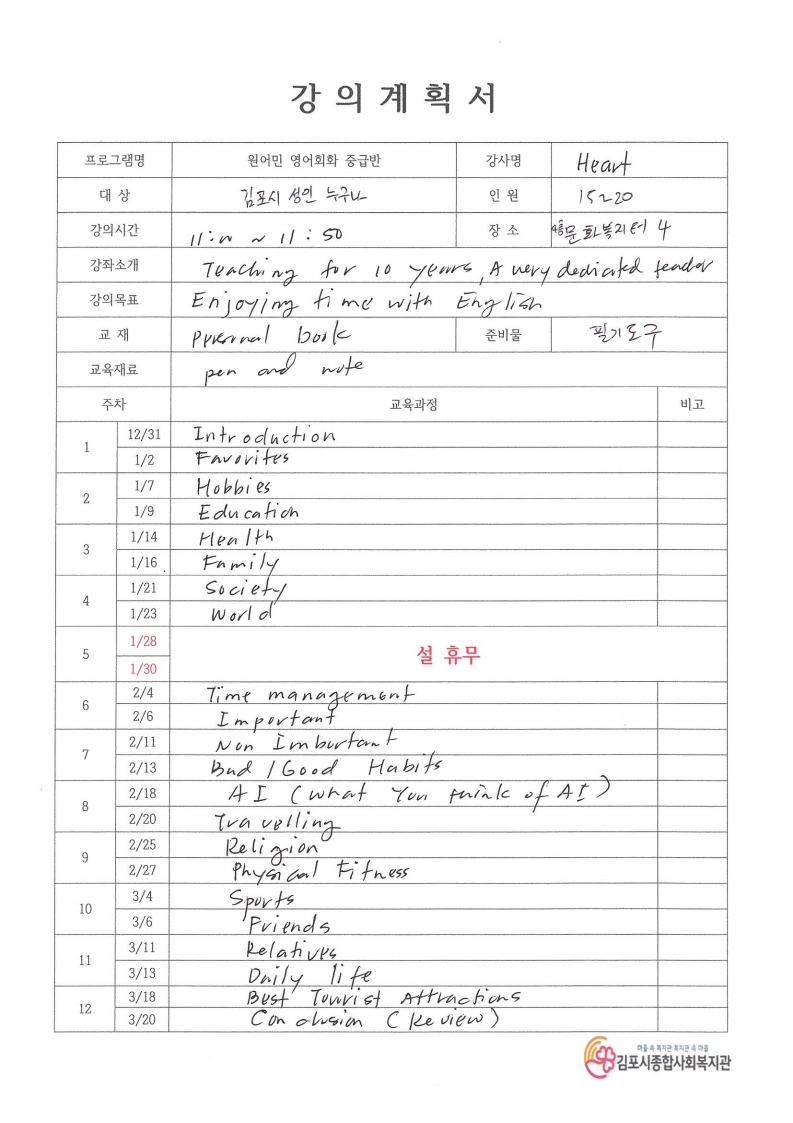 강 의 계 획 서
프로그램명 원어민 영어회화 중급반 강사명 Heart
대 상 김포시 성인 누구나 인 원 15~20
강의시간 11:00 ~ 11:50 장 소 4층 문화복지터 4
강좌소개 Teaching for 10 years, A very dedicated teacher
강의목표 Enjoying time with English
교 재 Personal book 준비물 필기도구
교육재료 pen and note
주차 교육과정 비고
1 12/31 Introduction
1/2 Favorites
2 1/7 Hobbies
1/9 Education
3 1/14 Health
1/16 Family
4 1/21 Society
1/23 World
5 1/28 설 휴무
1/30
6 2/4 Time management
2/6 Important
7 2/11 Non Imburtant
2/13 Bad / Good Habits
8 2/18 AI (what You think of AI)
2/20 Travelling
9 2/25 Religion
2/27 Physical Fitness
10 3/4 Sports
3/6 Friends
11 3/11 Relatives
3/13 Daily life
12 3/18 Best Tourist Attractions
3/20 Conclusion (Review)
마을 속 복지관 복지관 속 마을
김포시종합사회복지관